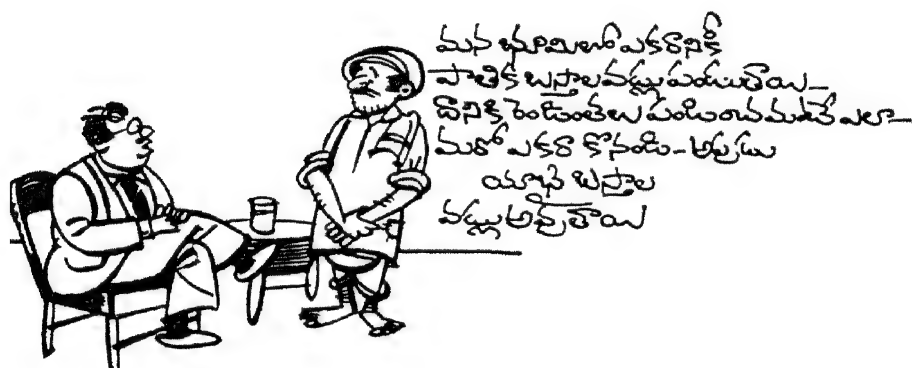 మన భూమిలో ఎకరానికీ
పాతిక బస్తాల వడ్లు పండుతాయి-
దానికి రెండింతలు పండించమంటే ఎలా-
మరో ఎకరా కొనండి - అప్పుడు
యాభై బస్తాల
వడ్లు అవుతాయి